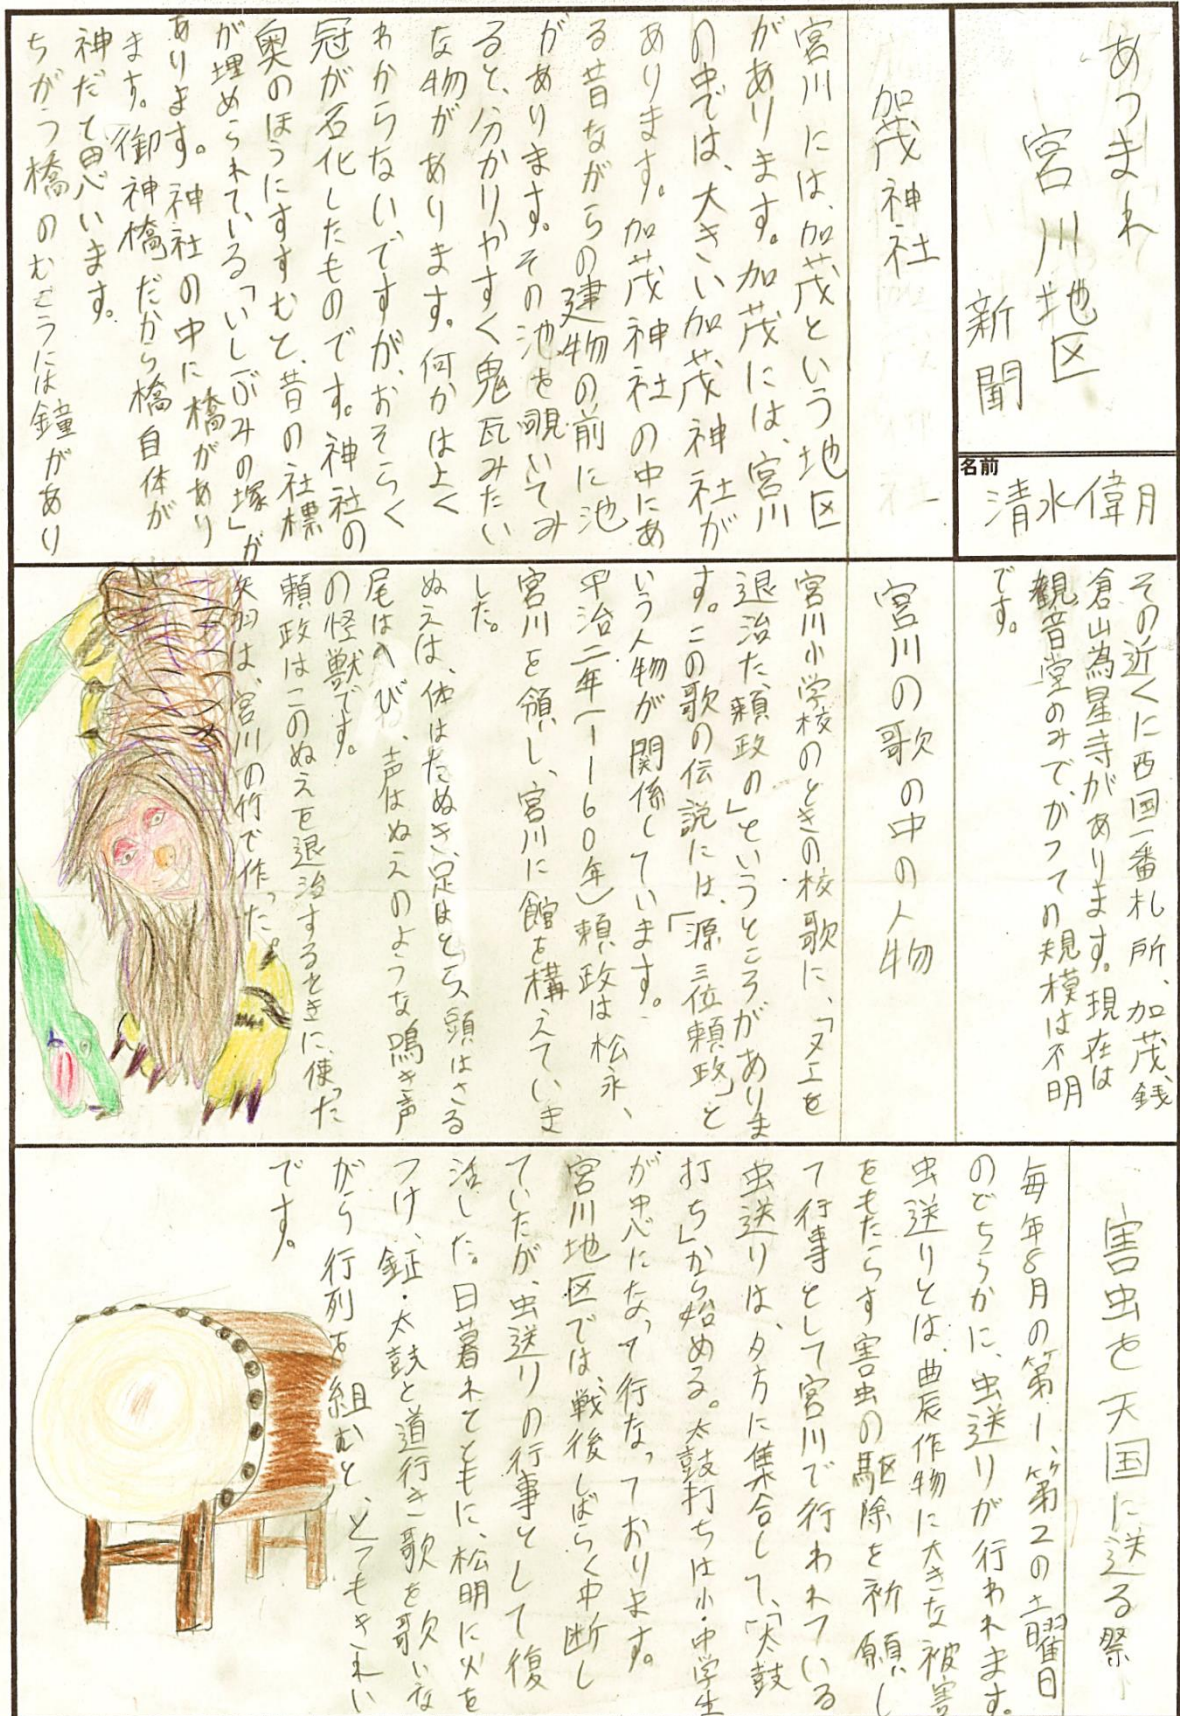 あつまれ
宮川地区
新聞
名前
清水偉月
加茂神社
宮川には、加茂という地区
があります。加茂には、宮川
の中では、大きい加茂神社が
あります。加茂神社の中にあ
る昔ながらの建物の前に池
があります。その池を覗いてみ
ると、分かりやすく鬼瓦みたい
な物があります。何かはよく
わからないですが、おそらく
冠が石化したものです。神社の
奥のほうにすすむと、昔の社標
が埋められている「いしぶみの塚」が
あります。神社の中に橋があり
ます。御神橋だから橋自体が
神だて思います。
ちがう橋のむこうには鐘があり
その近くに西国一番札所、加茂、銭
倉山為星寺があります。現在は
観音堂のみで、かつての規模は不明
です。
宮川の歌の中の人物
宮川小学校のときの校歌に、「ヌエを
退治た、頼政の」というところがありま
す。この歌の伝説には、「源三位頼政」と
いう人物が関係しています。
平治二年(1160年)頼政は松永、
宮川を領し、宮川に館を構えていま
した。
ぬえは、体はたぬき、足はとら、頭はさる
尾はへび、声はぬえのような鳴き声
の怪獣です。
頼政はこのぬえを退治するときに、使った
矢羽は、宮川の竹で作った。
害虫を天国に送る祭
毎年8月の第1、第2の土曜日
のどちらかに、虫送りが行われます。
虫送りとは、農作物に大きな被害
をもたらす害虫の駆除を祈願し
て行事として宮川で行われている
虫送りは、夕方に集合して、「太鼓
打ち」から始める。太鼓打ちは小・中学生
が中心になって行なっております。
宮川地区では、戦後しばらく中断し
ていたが、虫送りの行事として復
活した。日暮れとともに、松明に火を
つけ、鉦・太鼓と道行き歌を歌いな
がら行列を組むと、とってもきれい
です。